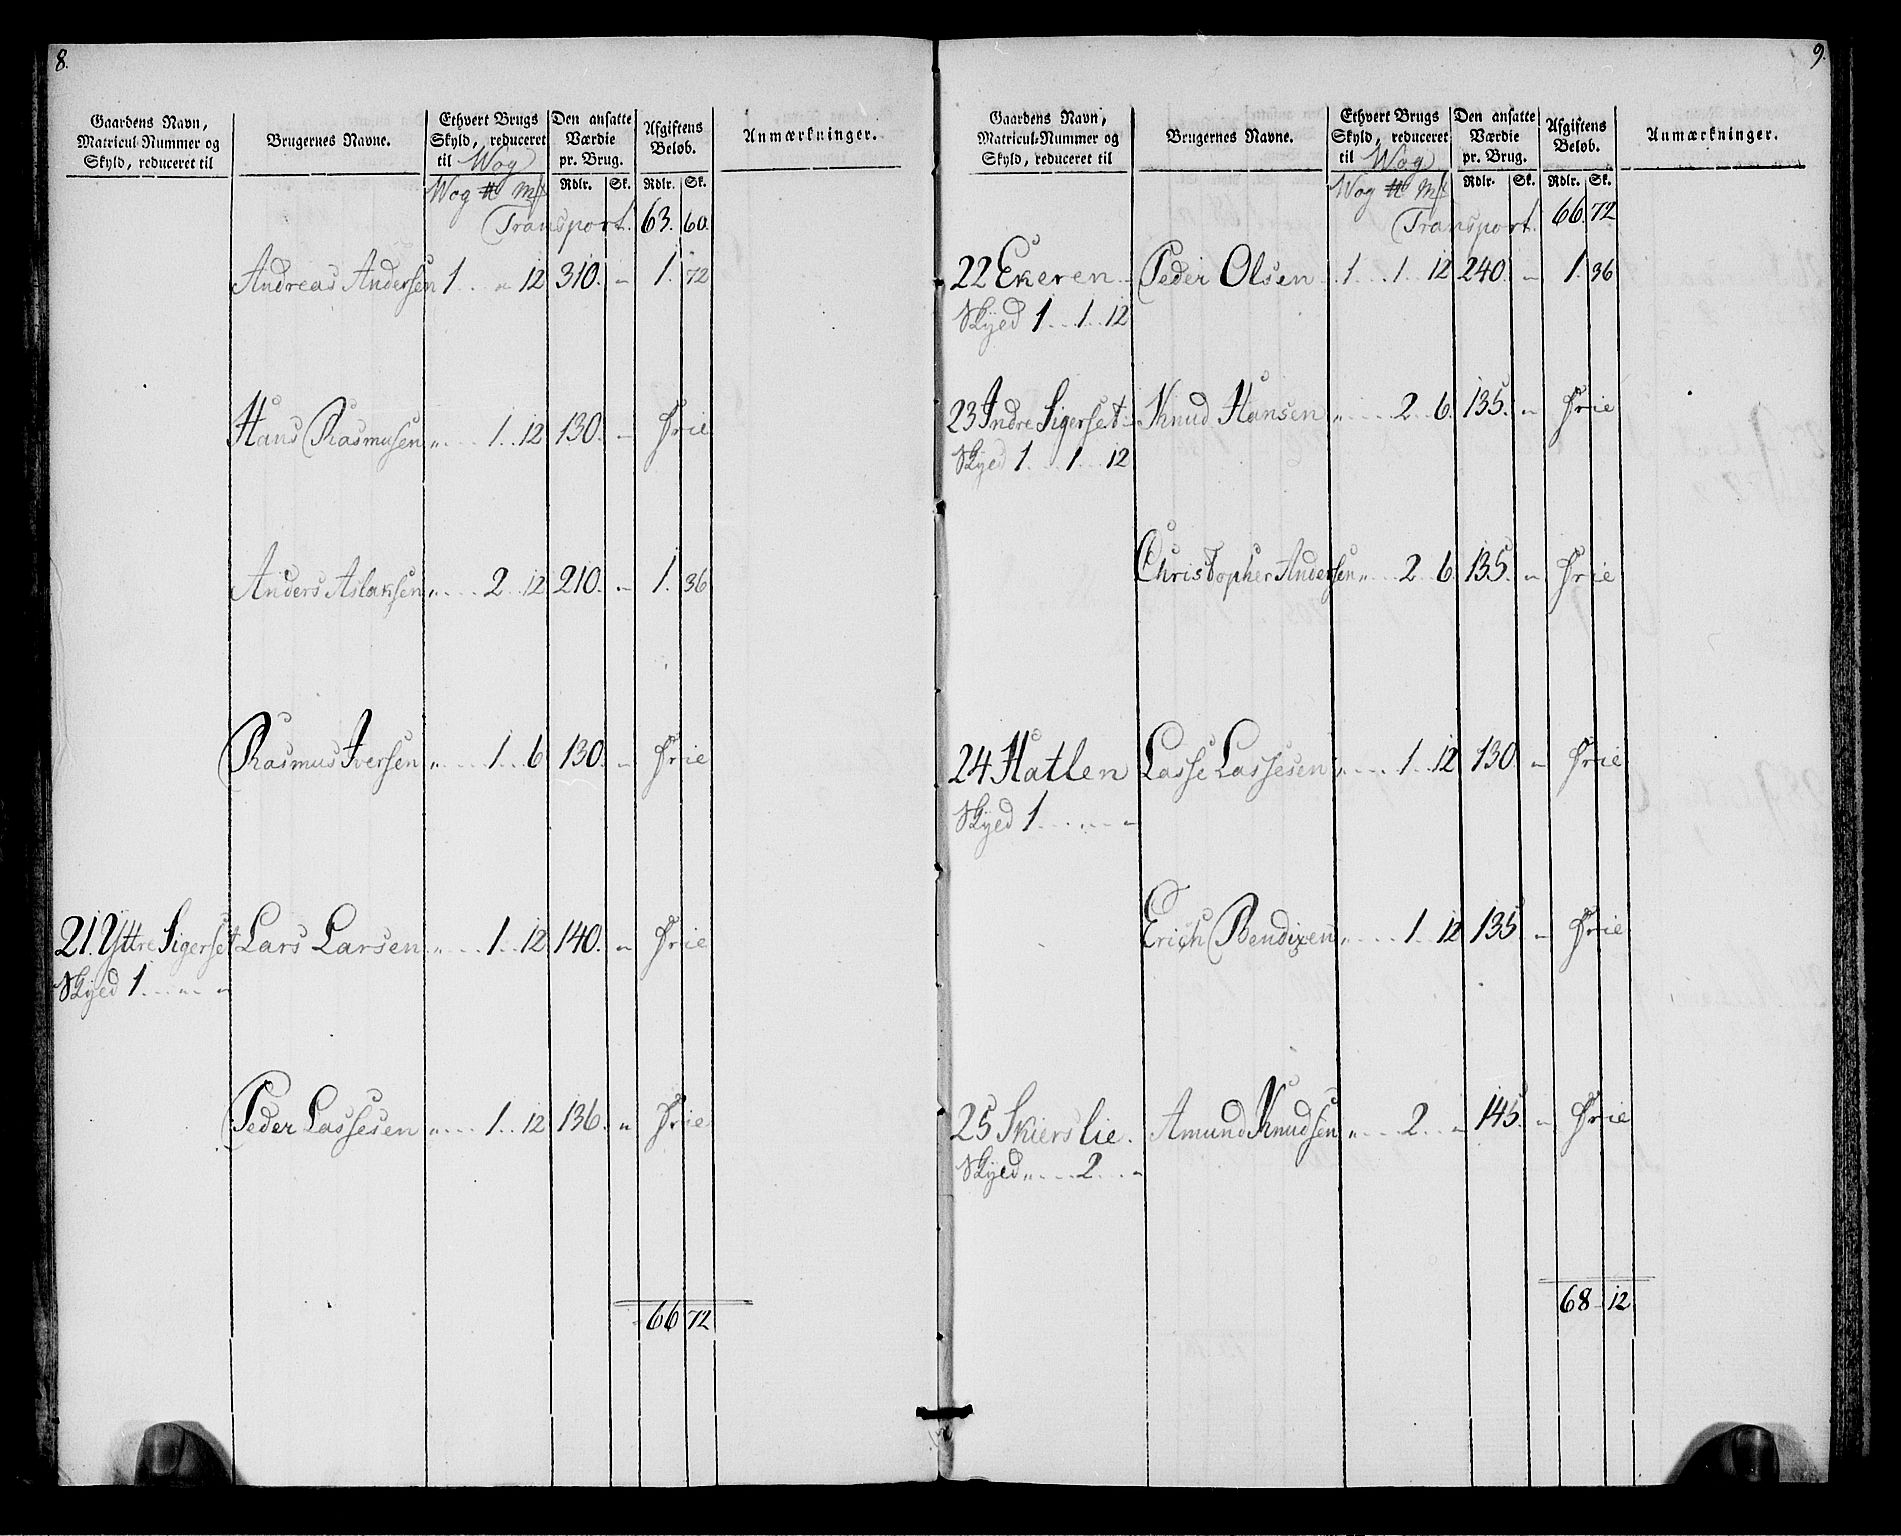 8.
Gaardens Navn, Matricul-Nummer og Skyld, reduceret til
Brugernes Navne.
Ethvert Brugs Skyld, reduceret til Wog
Den ansatte Værdie pr. Brug.
Afgiftens Beløb.
Anmærkninger.
Wog ℔ Mk Rdlr. Sk. Rdlr. Sk.
Transport. 63. 60.
Andreas Andersen 1 .. „ 12 310. „ 1. 72
Hans Rasmusen „ .... 1 .. 12 130. „ Frie
Anders Aslaksen „ .... 2 .. 12 210. „ 1. 36
Rasmus Iversen „ .... 1 .. 6 130. „ Frie
21. Yttre Sigerset Lars Larsen „ .... 1 .. 12 140. „ Frie
Skyed 1 .. „ .. „
Peder Lassesen „ .... 1 .. 12 136. „ Frie
66 72
9.
Gaardens Navn, Matricul-Nummer og Skyld, reduceret til
Brugernes Navne.
Ethvert Brugs Skyld, reduceret til Wog
Den ansatte Værdie pr. Brug.
Afgiftens Beløb.
Anmærkninger.
Wog ℔ Mk Rdlr. Sk. Rdlr. Sk.
Transport. 66. 72
22 Ekeren Peder Olsen 1 .. 1 .. 12 240. „ 1. 36
Skyed 1 .. 1 .. 12
23 Indre Sigerset Knud Hansen „ .... 2 .. 6. 135. „ Frie
Skyed 1 .. 1 .. 12
Christopher Andersen „ .... 2 .. 6. 135. „ Frie
24 Hatlen Lasse Lassesen „ .... 1 .. 12 130. „ Frie
Skyed 1 .. „ .. „
Erich Bendixen „ .... 1 .. 12 135 „ Frie
25 Skierslie. Amund Knudsen „ .... 2 .. „ 145. „ Frie
Skyed „ .... 2 .. „
68 12